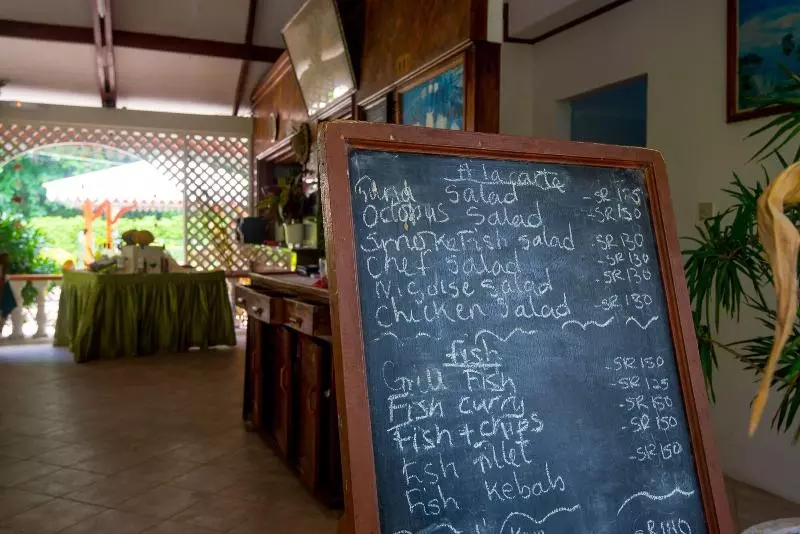 A la carte
Tuna Salad -SR175
Octopus Salad -SR150
SmokeFish Salad -SR130
Chef Salad -SR130
Nicoise Salad -SR130
Chicken Salad -SR130
fish
Grill Fish -SR150
Fish curry -SR125
Fish + chips -SR150
Fish fillet -SR150
Fish Kebab -SR150